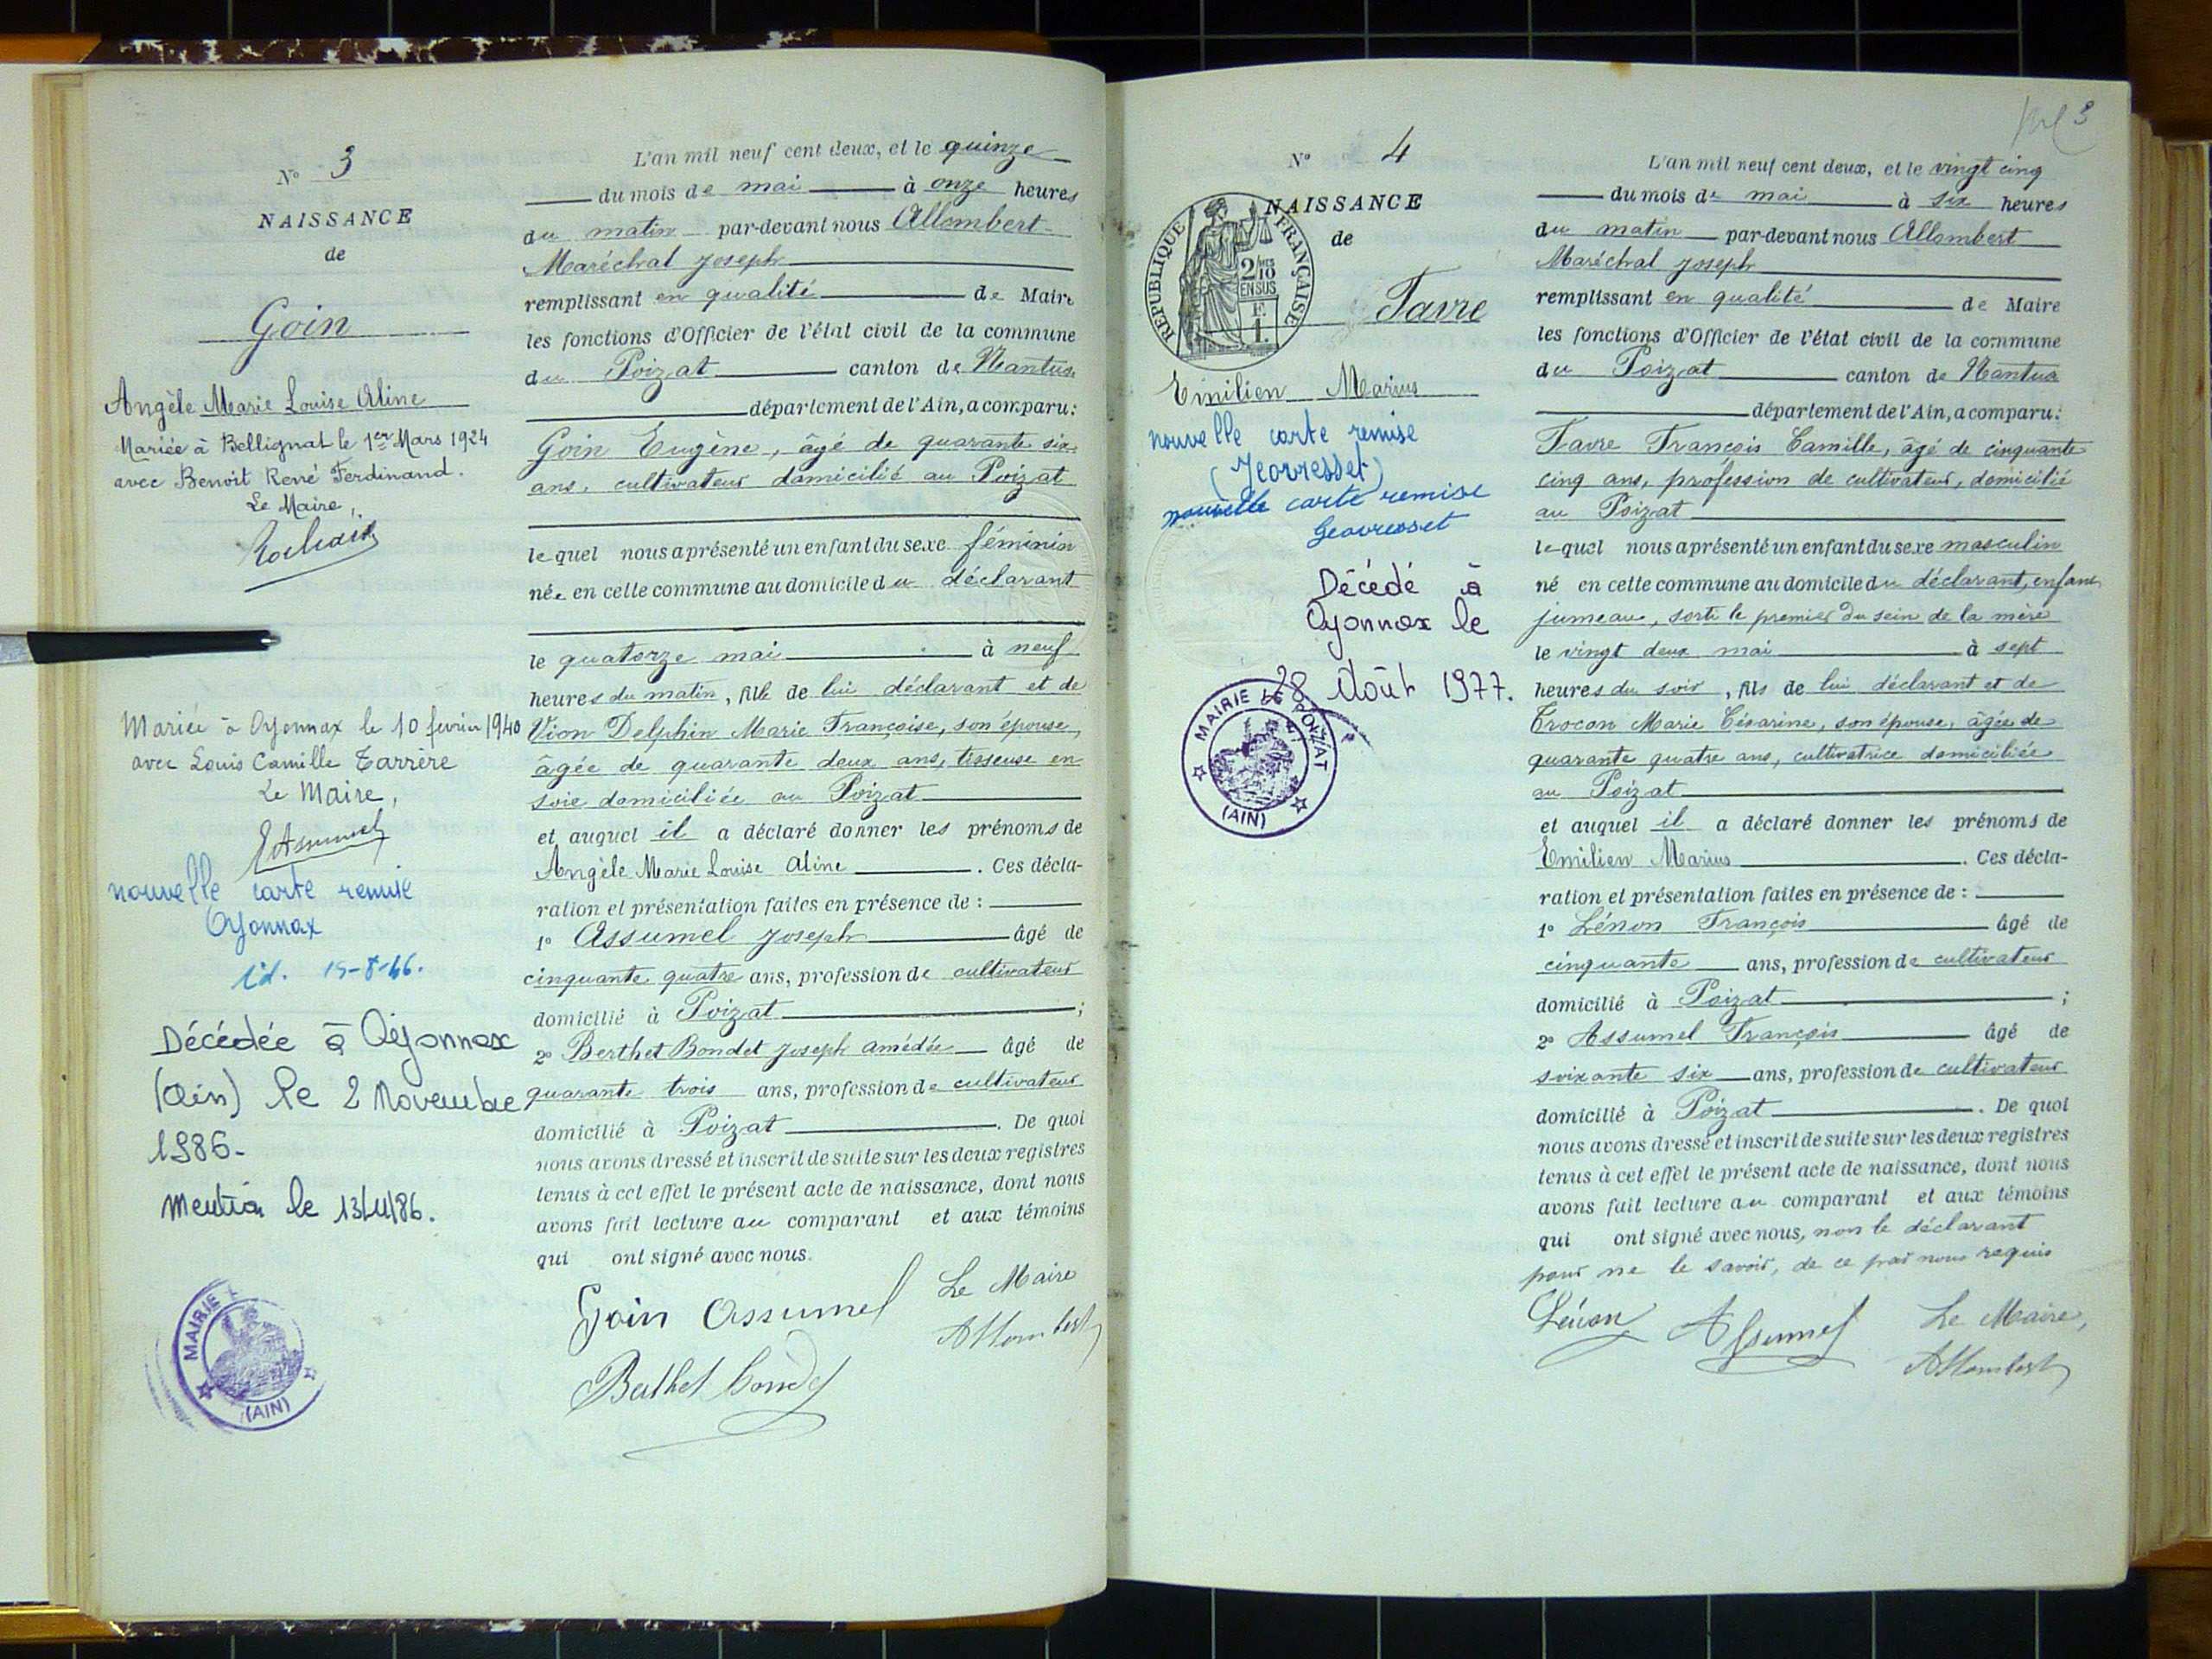 N° 3
NAISSANCE
de
Goin
Angèle Marie Louise Aline
Mariée à Bellignat le 1er Mars 1924
avec Benoit René Ferdinand.
Le Maire,
Mariée à Oyonnax le 10 fevrier 1940
avec Louis Camille Tarrère
Le Maire,
nouvelle carte remise
Oyonnax
id. 19-8-46.
Décédée à Oyonnax
(Ain) le 2 Novembre
1986-
Mention le 13/11/86.
MAIRIE L
(AIN)
L'an mil neuf cent deux, et le quinze
du mois de mai à onze heures
du matin par-devant nous Allombert
Maréchal Joseph
remplissant en qualité de Maire
les fonctions d'Officier de l'état civil de la commune
du Poizat canton de Nantua
département de l'Ain, a comparu:
Goin Eugène, âgé de quarante six
ans, cultivateur domicilié au Poizat
lequel nous a présenté un enfant du sexe féminin
née en cette commune au domicile du déclarant
le quatorze mai à neuf
heures du matin, fille de lui déclarant et de
Vion Delphin Marie Françoise, son épouse,
âgée de quarante deux ans, tisseuse en
soie domiciliée au Poizat
et auquel il a déclaré donner les prénoms de
Angèle Marie Louise Aline. Ces décla-
ration et présentation faites en présence de :
1° Assumel Joseph âgé de
cinquante quatre ans, profession de cultivateur
domicilié à Poizat ;
2° Berthet Bondet Joseph amédée âgé de
quarante trois ans, profession de cultivateur
domicilié à Poizat. De quoi
nous avons dressé et inscrit de suite sur les deux registres
tenus à cet effet le présent acte de naissance, dont nous
avons fait lecture au comparant et aux témoins
qui ont signé avec nous.
Goin Assumel Le Maire
Allombert
Berthet bondet
3
N° 4
NAISSANCE
de
RÉPUBLIQUE FRANÇAISE
2/10 EN SUS
F. 1.
Favre
Emilien Marius
nouvelle carte remise
(Geovresset)
nouvelle carte remise
Geovresset
Décédé à
Oyonnax le
28 Août 1977.
MAIRIE LE POIZAT
(AIN)
L'an mil neuf cent deux, et le vingt cinq
du mois de mai à six heures
du matin par-devant nous Allombert
Maréchal Joseph
remplissant en qualité de Maire
les fonctions d'Officier de l'état civil de la commune
du Poizat canton de Nantua
département de l'Ain, a comparu:
Favre François Camille, âgé de cinquante
cinq ans, profession de cultivateur, domicilié
au Poizat
lequel nous a présenté un enfant du sexe masculin
né en cette commune au domicile du déclarant, enfant
jumeau, sorti le premier du sein de la mère
le vingt deux mai à sept
heures du soir, fils de lui déclarant et de
Crocon Marie Césarine, son épouse, âgée de
quarante quatre ans, cultivatrice domiciliée
au Poizat
et auquel il a déclaré donner les prénoms de
Emilien Marius. Ces décla-
ration et présentation faites en présence de :
1° Lénon François âgé de
cinquante ans, profession de cultivateur
domicilié à Poizat ;
2° Assumel François âgé de
soixante six ans, profession de cultivateur
domicilié à Poizat. De quoi
nous avons dressé et inscrit de suite sur les deux registres
tenus à cet effet le présent acte de naissance, dont nous
avons fait lecture au comparant et aux témoins
qui ont signé avec nous, non le déclarant
pour ne le savoir, de ce par nous requis
Lénon Assumel Le Maire,
Allombert